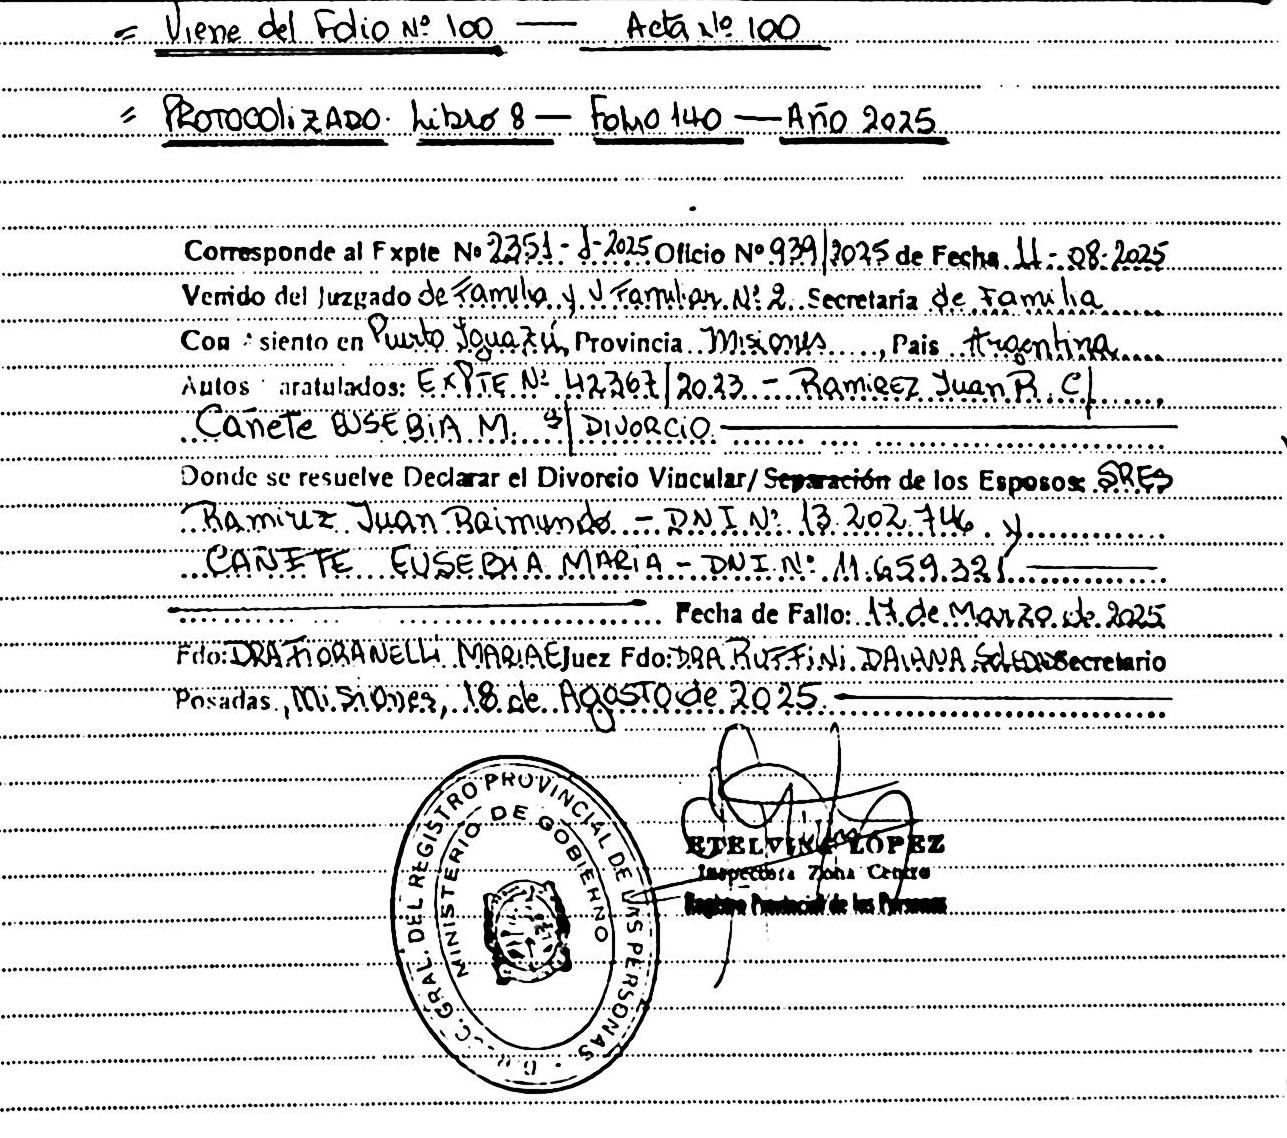 = Viene del Folio Nº 100 — Acta Nº 100
= PROTOCOLIZADO. Libro 8 — Folio 140 — Año 2025
Corresponde al Expte Nº 2351-J-2025 Oficio Nº 939/2025 de Fecha 11-08-2025
Venido del Juzgado de Familia y V. Familiar Nº 2 Secretaría de Familia
Con asiento en Puerto Iguazú, Provincia Misiones, Pais Argentina
Autos caratulados: EXPTE Nº 42367/2023 - RAMIREZ Juan R. C/
Cañete EUSEBIA M. S/ DIVORCIO
Donde se resuelve Declarar el Divorcio Vincular/ Separación de los Esposos: SRES
Ramirez Juan Raimundo - DNI Nº 13.202.746 y
CAÑETE EUSEBIA MARIA - DNI Nº 11.659.321
Fecha de Fallo: 17 de Marzo de 2025
Fdo: DRA FIORANELLI MARIA E Juez Fdo: DRA RUFFINI DAIANA Secretario
Posadas, Misiones, 18 de AGOSTO de 2025
ETELVINA LOPEZ
Inspectora Zona Centro
Registro Provincial de las Personas
GRAL. DEL REGISTRO PROVINCIAL DE LAS PERSONAS
MINISTERIO DE GOBIERNO